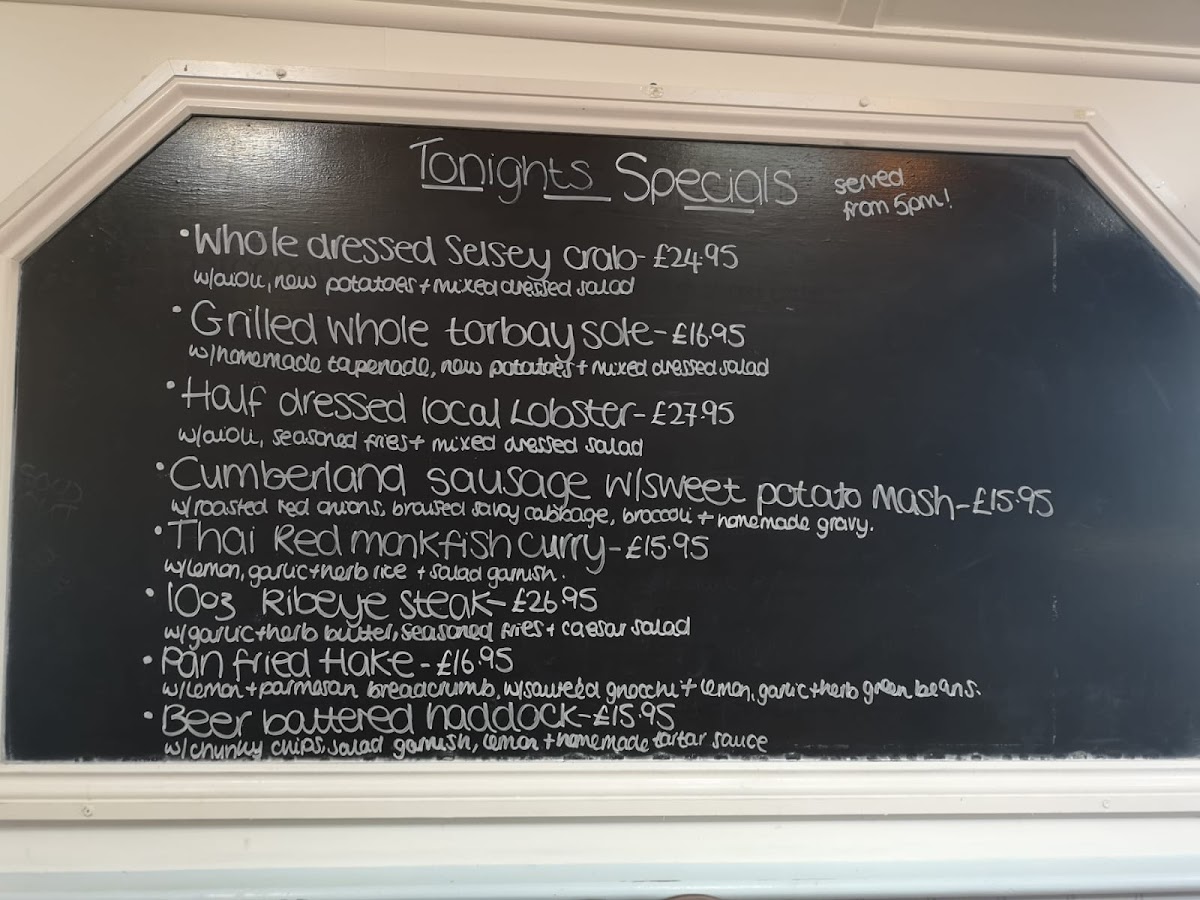 Tonights Specials served
from 5pm!
• Whole dressed Selsey crab - £24.95
w/aioli, new potatoes + mixed dressed salad
• Grilled whole torbay sole - £16.95
w/homemade tapenade, new potatoes + mixed dressed salad
• Half dressed local Lobster - £27.95
w/aioli, seasoned fries + mixed dressed salad
• Cumberland sausage w/sweet potato mash - £15.95
w/roasted red onions, braised savoy cabbage, broccoli + homemade gravy.
• Thai Red monkfish curry - £15.95
w/lemon, garlic + herb rice + salad garnish.
• 10oz Ribeye steak - £26.95
w/garlic + herb butter, seasoned fries + caesar salad
• Pan fried Hake - £16.95
w/lemon + parmesan breadcrumb, w/sauteed gnocchi + lemon, garlic + herb green beans.
• Beer battered haddock - £15.95
w/chunky chips, salad garnish, lemon + homemade tartar sauce